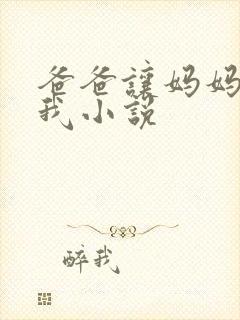 爸爸讓妈妈
我小说
醉我